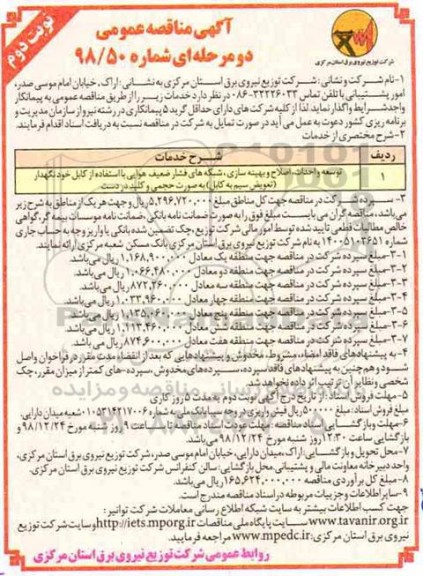 نوبت دوم
آگهی مناقصه عمومی
دو مرحله ای شماره ۹۸/۵۰
شرکت توزیع نیروی برق استان مرکزی
۱-نام شرکت و نشانی: شرکت توزیع نیروی برق استان مرکزی به نشانی: اراک، خیابان امام موسی صدر،
امور پشتیبانی با تلفن تماس ۳۲۲۲۶۰۳۳-۰۸۶ در نظر دارد خدمات زیر را از طریق مناقصه عمومی به پیمانکار
واجد شرایط واگذار نماید. لذا از کلیه شرکت های دارای حداقل گرید ۵ پیمانکاری در رشته نیرو از سازمان مدیریت و
برنامه ریزی کشور دعوت به عمل می آید در صورت تمایل به شرکت در مناقصه نسبت به دریافت اسناد اقدام فرمایند.
۲-شرح مختصری از خدمات
ردیف شرح خدمات
۱ توسعه و احداث، اصلاح و بهینه سازی، شبکه های فشار ضعیف هوایی با استفاده از کابل خود نگهدار
(تعویض سیم به کابل) به صورت حجمی و کلید در دست
۳- سپرده شرکت در مناقصه جهت کل مناطق مبلغ ۵,۲۹۶,۷۲۰,۰۰۰ ریال و جهت هر یک از مناطق به شرح زیر
می باشد، مناقصه گران می بایست مبلغ فوق را به صورت ضمانت نامه بانکی، ضمانت نامه موسسات بیمه گر، گواهی
خالص مطالبات قطعی تایید شده توسط امور مالی شرکت توزیع، چک تضمین شده بانکی یا واریز وجه به حساب جاری
شماره ۱۴۰۰۵۱۰۳۶۵۱ به نام شرکت توزیع نیروی برق استان مرکزی بانک مسکن شعبه مرکزی ارائه نمایند.
۳-۱-مبلغ سپرده شرکت در مناقصه جهت منطقه یک معادل ۱,۱۶۸,۹۰۰,۰۰۰ ریال می باشد.
۳-۲-مبلغ سپرده شرکت در مناقصه جهت منطقه دو معادل ۱,۰۶۶,۴۸۰,۰۰۰ ریال می باشد.
۳-۳-مبلغ سپرده شرکت در مناقصه جهت منطقه سه معادل ۸۷۲,۳۶۰,۰۰۰ ریال می باشد.
۳-۴-مبلغ سپرده شرکت در مناقصه جهت منطقه چهار معادل ۱,۰۳۳,۹۶۰,۰۰۰ ریال می باشد.
۳-۵-مبلغ سپرده شرکت در مناقصه جهت منطقه پنج معادل ۱,۱۳۵,۵۶۰,۰۰۰ ریال می باشد.
۳-۶-مبلغ سپرده شرکت در مناقصه جهت منطقه شش معادل ۱,۱۱۳,۴۶۰,۰۰۰ ریال می باشد.
۳-۷-مبلغ سپرده شرکت در مناقصه جهت منطقه هفت معادل ۸۷۴,۶۰۰,۰۰۰ ریال می باشد.
۴- به پیشنهادهای فاقد امضاء، مشروط، مخدوش و پیشنهادهایی که بعد از انقضاء مدت مقرر در فراخوان واصل
شود و هم چنین به پیشنهادهای فاقد سپرده، سپرده های مخدوش، سپرده های کمتر از میزان مقرر، چک
شخصی و نظایر آن ترتیب اثر داده نخواهد شد.
۵- مهلت فروش اسناد: از تاریخ درج آگهی نوبت دوم به مدت ۵ روز کاری
مبلغ فروش اسناد: مبلغ ۵۰۰,۰۰۰ ریال فیش واریزی در وجه سیبا بانک ملی به شماره ۰۱۰۵۲۹۴۲۱۷۰۰۶ شعبه میدان دارایی.
۶- مهلت و بازگشایی اسناد مناقصه: مهلت تحویل اسناد مناقصه تا ساعت ۹ روز شنبه مورخ ۹۸/۱۲/۲۴ و
بازگشایی ساعت ۱۲:۳۰ روز شنبه مورخ ۹۸/۱۲/۲۴ می باشد.
۷- محل تحویل و بازگشایی: اراک، میدان دارایی، خیابان امام موسی صدر، شرکت توزیع نیروی برق استان مرکزی،
واحد دبیرخانه معاونت مالی و پشتیبانی. محل بازگشایی: سالن کنفرانس شرکت توزیع نیروی برق استان مرکزی.
۸-مبلغ کل برآوردی مناقصه ۱۶۵,۶۲۴,۰۰۰,۰۰۰ ریال می باشد.
۹-سایر اطلاعات و جزییات مربوطه در اسناد مناقصه مندرج است.
جهت کسب اطلاعات بیشتر به سایت شبکه اطلاع رسانی معاملات شرکت توانیر:
www.tavanir.org.ir سایت پایگاه ملی مناقصات http://iets.mporg.ir وسایت شرکت توزیع
نیروی برق استان مرکزی: www.mpedc.ir مراجعه فرمایید.
روابط عمومی شرکت توزیع نیروی برق استان مرکزی